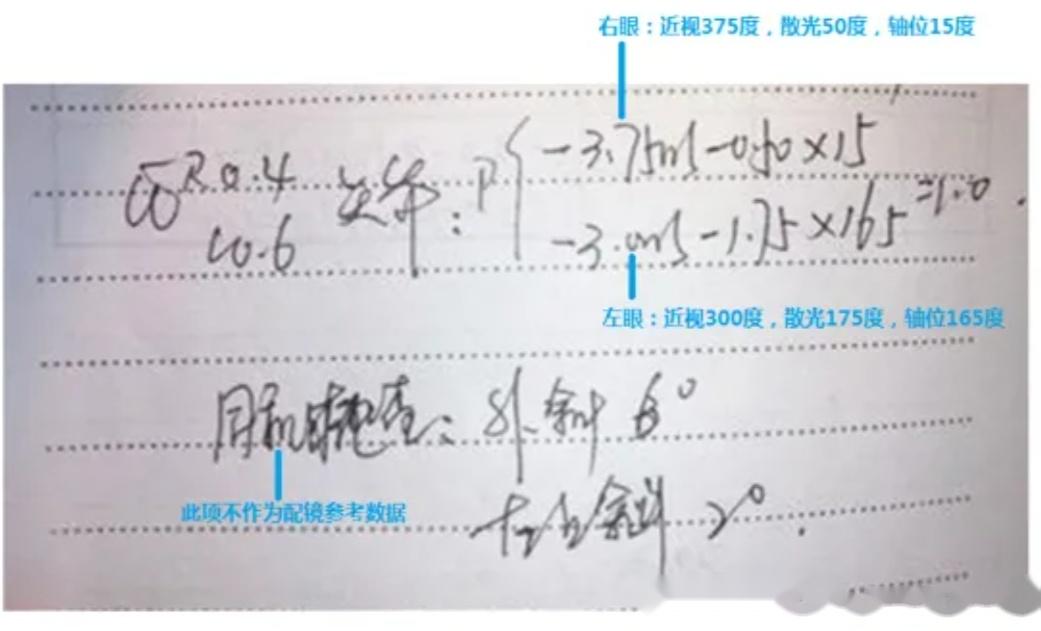 右眼：近视375度，散光50度，轴位15度
R 0.4
-3.75DS -0.50×15
L0.6
-3.0DS -1.75×165 =1.0.
左眼：近视300度，散光175度，轴位165度
同机检查：外斜 6°
此项不作为配镜参考数据
斜 2°.